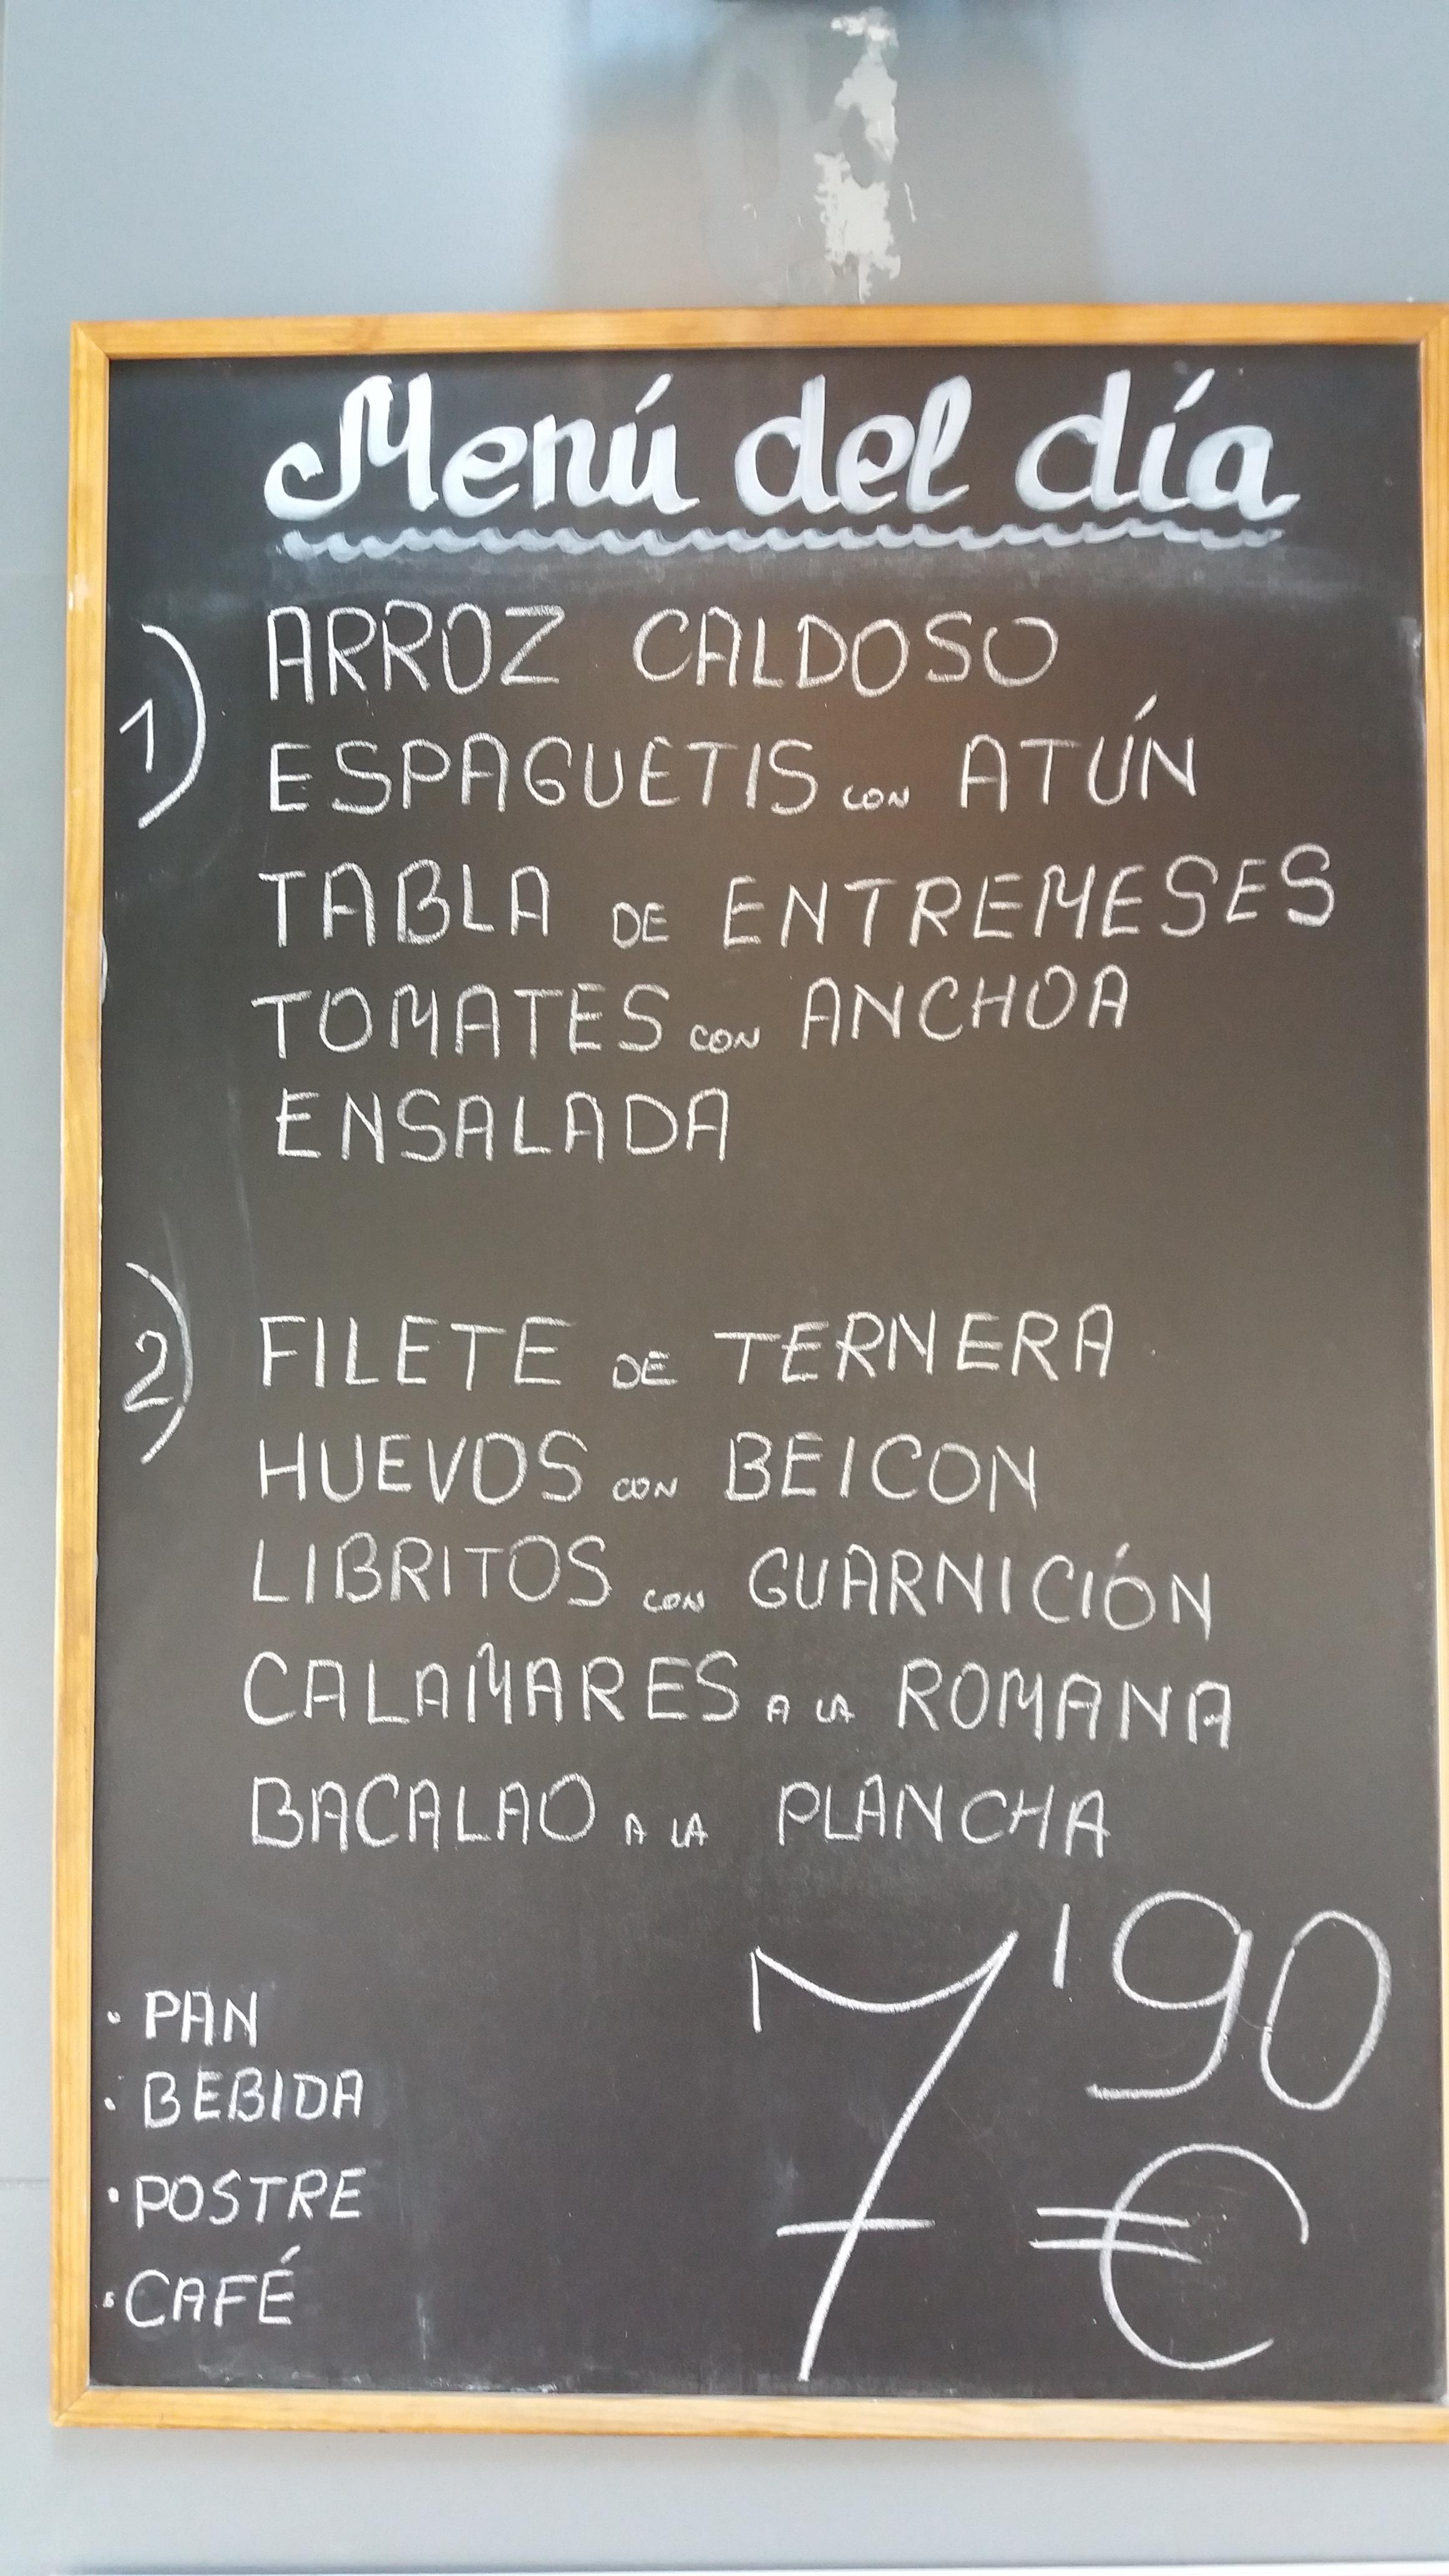 Menú del día
1) ARROZ CALDOSO
ESPAGUETIS CON ATÚN
TABLA DE ENTREMESES
TOMATES CON ANCHOA
ENSALADA
2) FILETE DE TERNERA
HUEVOS CON BEICON
LIBRITOS CON GUARNICIÓN
CALAMARES A LA ROMANA
BACALAO A LA PLANCHA
· PAN
· BEBIDA
· POSTRE
· CAFÉ
7'90 €